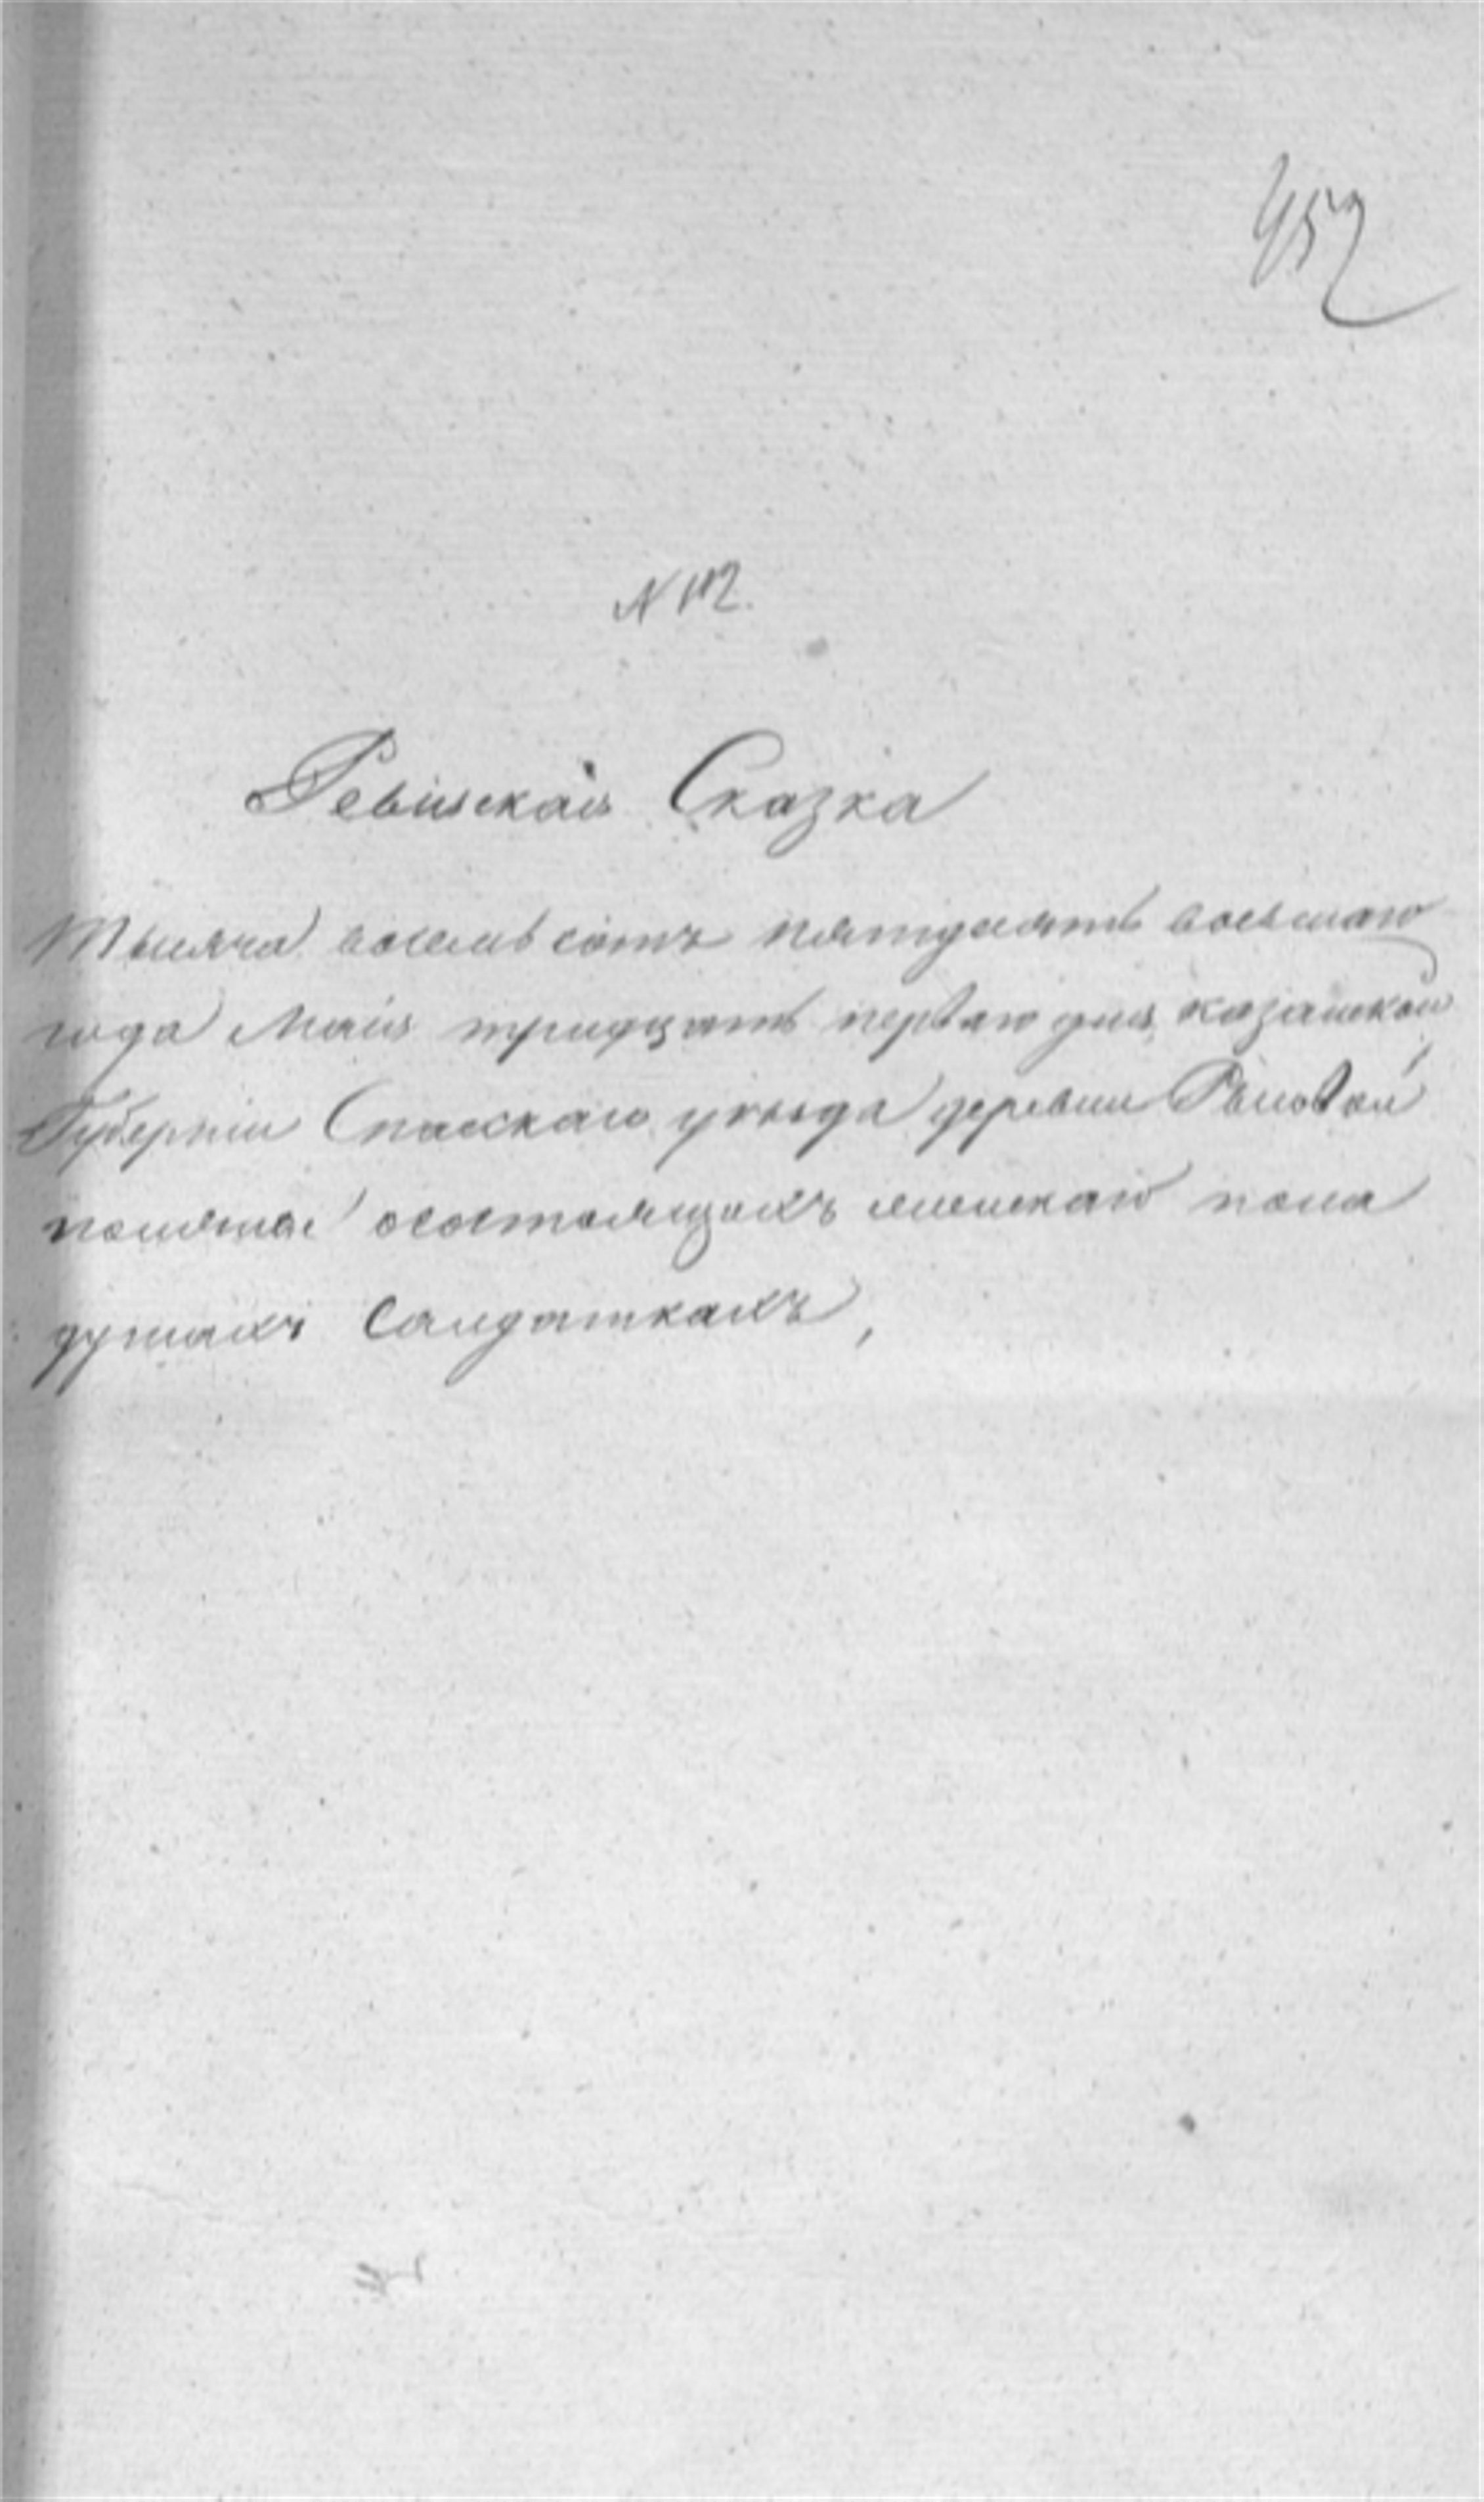 452
N 112.
Ревиская Сказка
Тысяча восемь сотъ пятдесятъ восьмаго
года Мая тридцать перваго дня, казанской
Губерніи Спаскаго уезда деревни
осостоящихъ женскаго пола
душахъ Салдаткахъ,